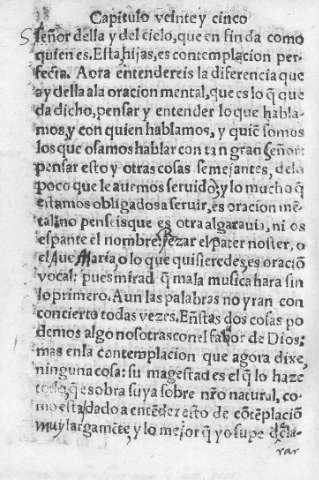 Capitulo veinte y cinco
Señor della y del cielo, que en fin da como
quien es. Esta hijas, es contemplacion per-
fecta. Aora entendereis la diferencia que
ay della ala oracion mental, que es lo q̄ que
da dicho, pensar y entender lo que habla-
mos, y con quien hablamos, y quiē somos
los que osamos hablar con tan gran Señor:
pensar esto y otras cosas semejantes, delo
poco que le auemos seruido, y lo mucho q̄
estamos obligados a seruir, es oracion mē-
tal: no penseis que es otra algarauia, ni os
espante el nombre, rezar el pater noster, o
el Aue Maria, o lo que quisieredes, es oraciō
vocal: pues mirad q̄ mala musica hara sin
lo primero. Aun las palabras no yran con
concierto todas vezes. Enstas dos cosas po
demos algo nosotras con el fabor de Dios:
mas en la contemplacion que agora dixe,
ninguna cosa: su magestad es el q̄ lo haze
todo, q̄ es obra suya sobre nro natural, co-
mo esta dado a entēder esto de cōtēplaciō
muy largamēte, y lo mejor q̄ yo supe decla-
rar